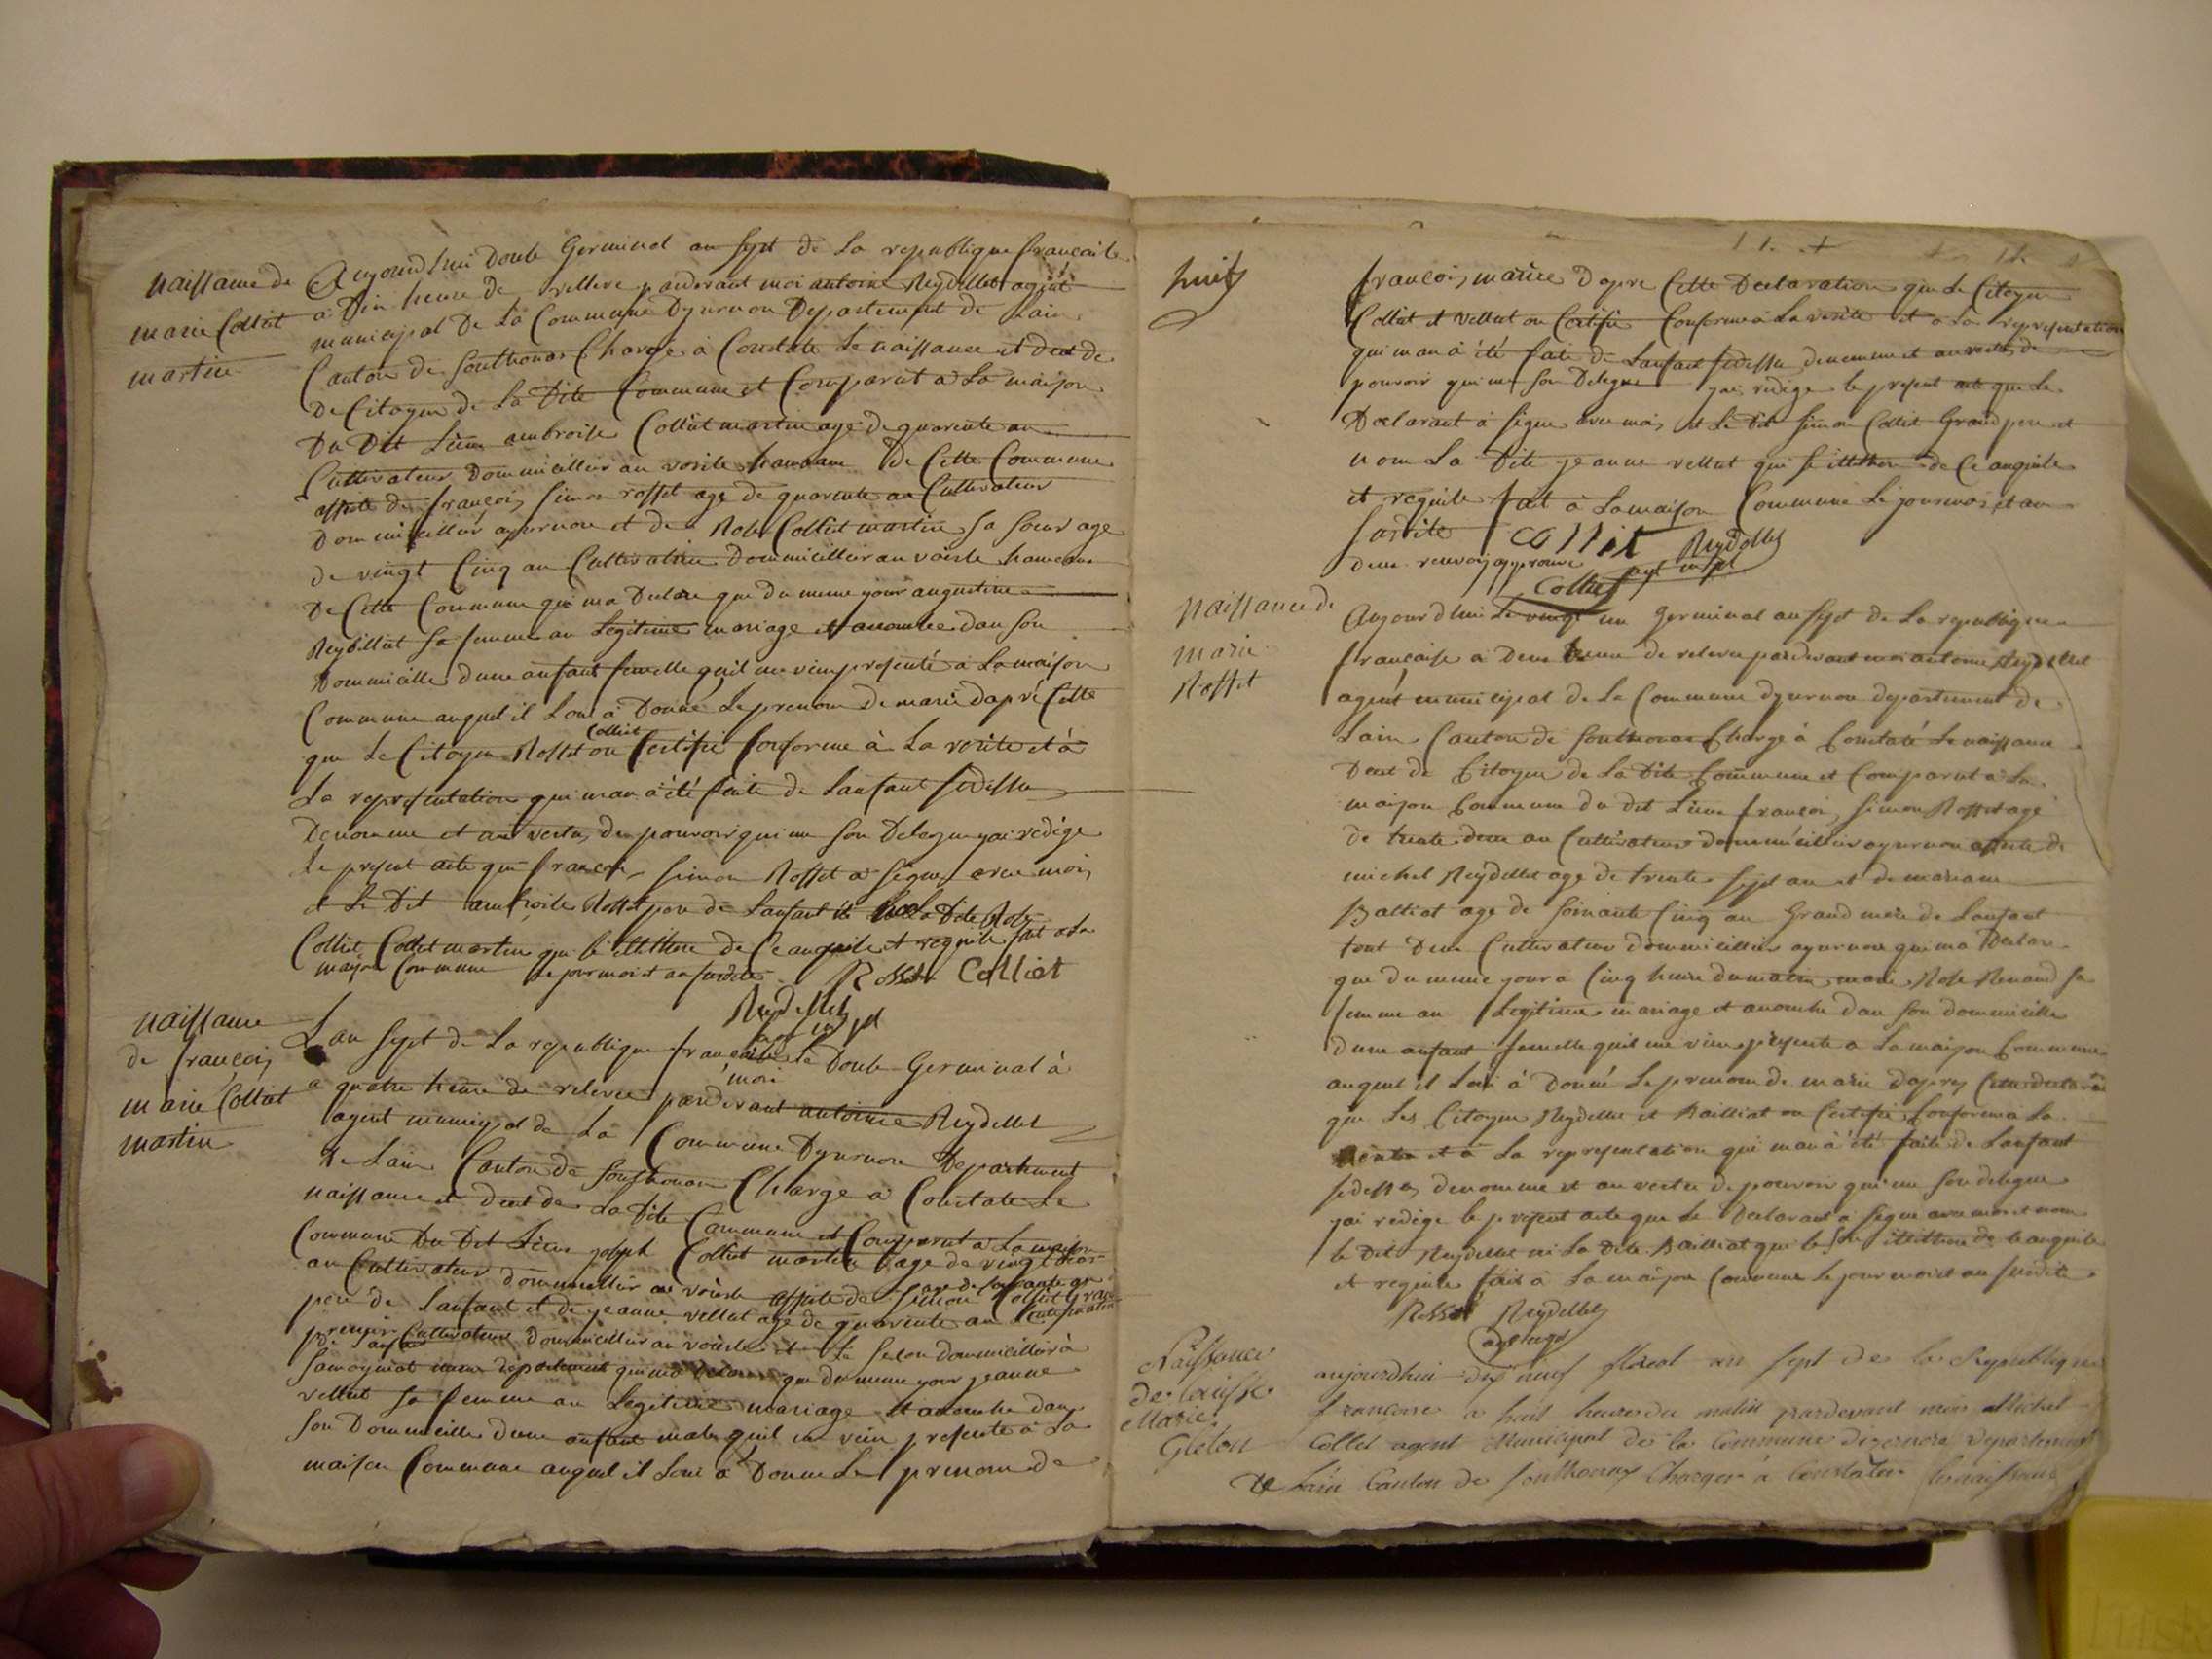 naissance de
marie Colliet
martin
Aujourdhui Douse Germinal an sept de la republique francaise
a Dix heure de relleve pardevant moi antoine Reydellet agént
municipal De La Commune Dyzernon Departement de Lain
Canton de Sonthonas Chargé à Constate Le naissance et deet de
De Citoyen de La Dite Commune et Comparut a La maison
Du Dit Lieu ambroise Colliet martin age de quarente an
Cultivateur Dommicillier au voisle hameau De Cette Commune
assité de françois Simon rosset age de quarente an Cultivateur
Dommicillié ayzernon et de Rose Colliet martin Sa Soeur age
de vingt Cinq an Cultivatrice Dommicillier au voisle hameau
De Cette Commune qui ma Declare que du meme your augustine
Reydellet Sa femme an Legitime mariage et accouchee dan Son
Dommicille dune anfant femelle quil me vien presenté à La maison
Commune auquel il Loui à Donné Le prenom De marie dapré Cette
que Le Citoyen Rosset Colliet on Certifié Conforme à La verite et à
La representation qui man à été faite de Lanfant Sudessu
Denomme et au vertu du pouvoir qui me Son Delegue yai redige
Le present acte que francoi Simon Rosset a Signe avec moi
et Le Dit ambroise Rosset pere de Lanfant La Dite Rose
Colliet Collet martin qui le illettere de Ce anquile et requile fait a La
maison Commune Le jour moi et an Surdite Rosset Colliet
Reydellet
agt mpl
naissance
de françois
marie Colliet
martin
Lan sept de La republique francaise Le Douse Germinal à
a quatre heure de relevee pardevant moi antoine Reydellet
agent municipal de La Commune Dyzernon Departement
de Lain Canton de Sonthonas Charge a Constate Le
naissance et deet de La Dite Commune et Comparut a La maison
Commune Du Dit Lieu joseph Colliet martin age de vingt
an Cultivateur dommicillier au voisle assite de Simon Colliet
age de soisante an
pere de Lanfant et de jeanne vellut age de quarente an
Cultivateur dommicillier au voisle et La Selon dommicillier à
Samognat meme departement qui ma declare que du meme your jeanne
vellut Sa femme au Legitime mariage et acouche dan
Son Dommicille dune anfant male quil me vien presente à La
maison Commune auquel il Loui a Donne Le prenom de
huit
françois marie Dapre Cette Declaration que Le Citoyen
Colliet et Vellut on Certifie Conforme à La verite et a La representation
qui man à été faite de Lanfant Sudessu denomme et au vertu de
pouvoir qui me Son Delegue yai redige le present acte que Le
Declarant à Signe avec moi et Le Dit Simon Colliet Grand pere et
nom La Dite jeanne vellut qui se illettere de Ce anquile
et requile fait à La maison Commune Le jour moi et an
Surdite colliet Reydellet
deux renvoy approuve Colliet agt mpl
Naissance de
marie
Rosset
Aujourdhui Le vingt un germinal an sept de La republique
francaise a deux heure de relevee pardevant moi antoine Reydellet
agént municipal de La Commune dyzernon departement de
Lain Canton de Sonthonas Charge à Constaté Le naissance
Deet de Citoyen de La Dite Commune et Comparut a La
maison Commune du dit Lieu francoi Simon Rosset age
de trente deux an Cultivateur dommicillier ayzernon assite de
michel Reydellet age de trente sept an et de mariane
Balliat age de soixante Cinq an Grand mere de Lanfant
tout Deux Cultivateur dommicillier ayzernon qui ma Declare
que du meme your a Cinq heure du matin marie Rose Renaud Sa
femme au Legitime mariage et acouche dan Son dommicille
dune anfant femelle quil me vien presente a La maison Commune
auquel il Loui à Donné Le prenom de marie dapres Cette declaration
que Les Citoyen Reydellet et Bailliat on Certifie Conforme à La
verite et à La representation qui man à été faite de Lanfant
Sudessu denomme et au vertu de pouvoir qui me Son delegue
yai redige le present acte que Le Declarant a Signe avec moi et nom
le Dit Reydellet ni La Dite Bailliat qui se Son illettere de ce anquile
et requile fait à La maison Commune le jour moi et an Surdite
Rosset Reydellet
Naissance
de Louise
Marie
Gléton
aujourdhui dix neuf floreal an sept de la Republique
francoise a huit heures du matin pardevant moi Michel
Collet agent Municipal de la Commune dizernore Departement
De Lain Canton de Sonthonnas Charger à Constater les naissance